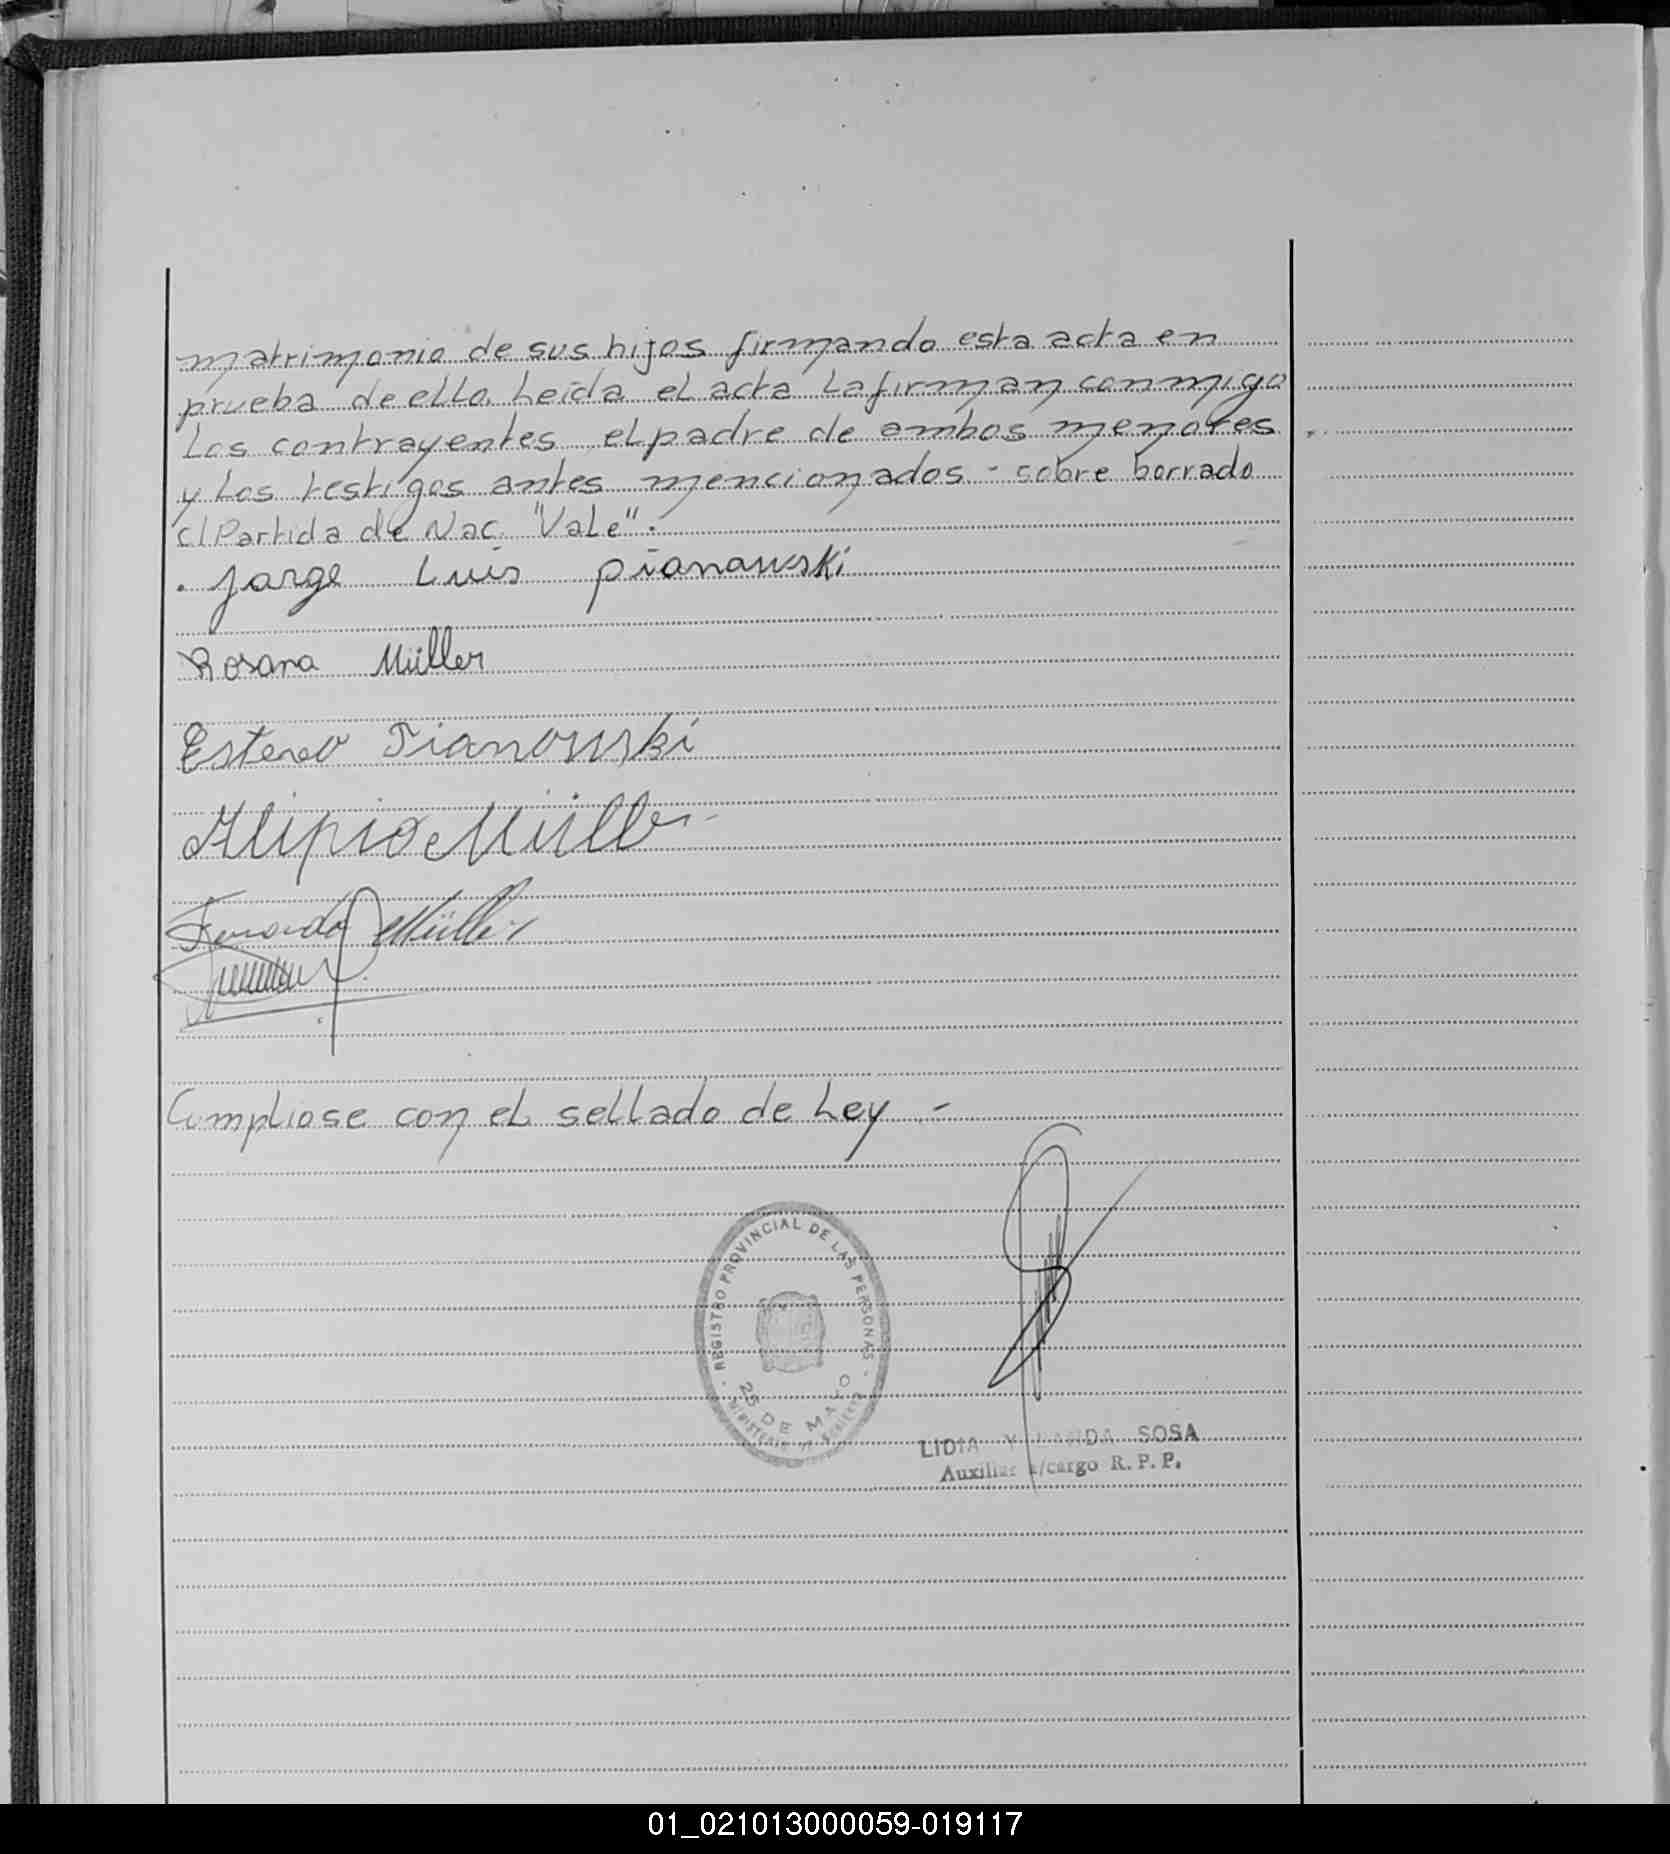 matrimonio de sus hijos firmando esta acta en
prueba de ello. Leída el acta la firman conmigo
los contrayentes el padre de ambos menores
y los testigos antes mencionados - sobre borrado
c/ Partida de Nac. "Vale".
. Jorge Luis pianauski
Rosana Müller
Estevo Pianowski
Alipio Müller
Fernando Müller
Cumpliose con el sellado de Ley . -
· REGISTRO PROVINCIAL DE LAS PERSONAS ·
25 DE MAYO
MINISTERIO DE GOBIERNO
LIDIA YOLANDA SOSA
Auxiliar a/cargo R. P. P.
01_021013000059-019117